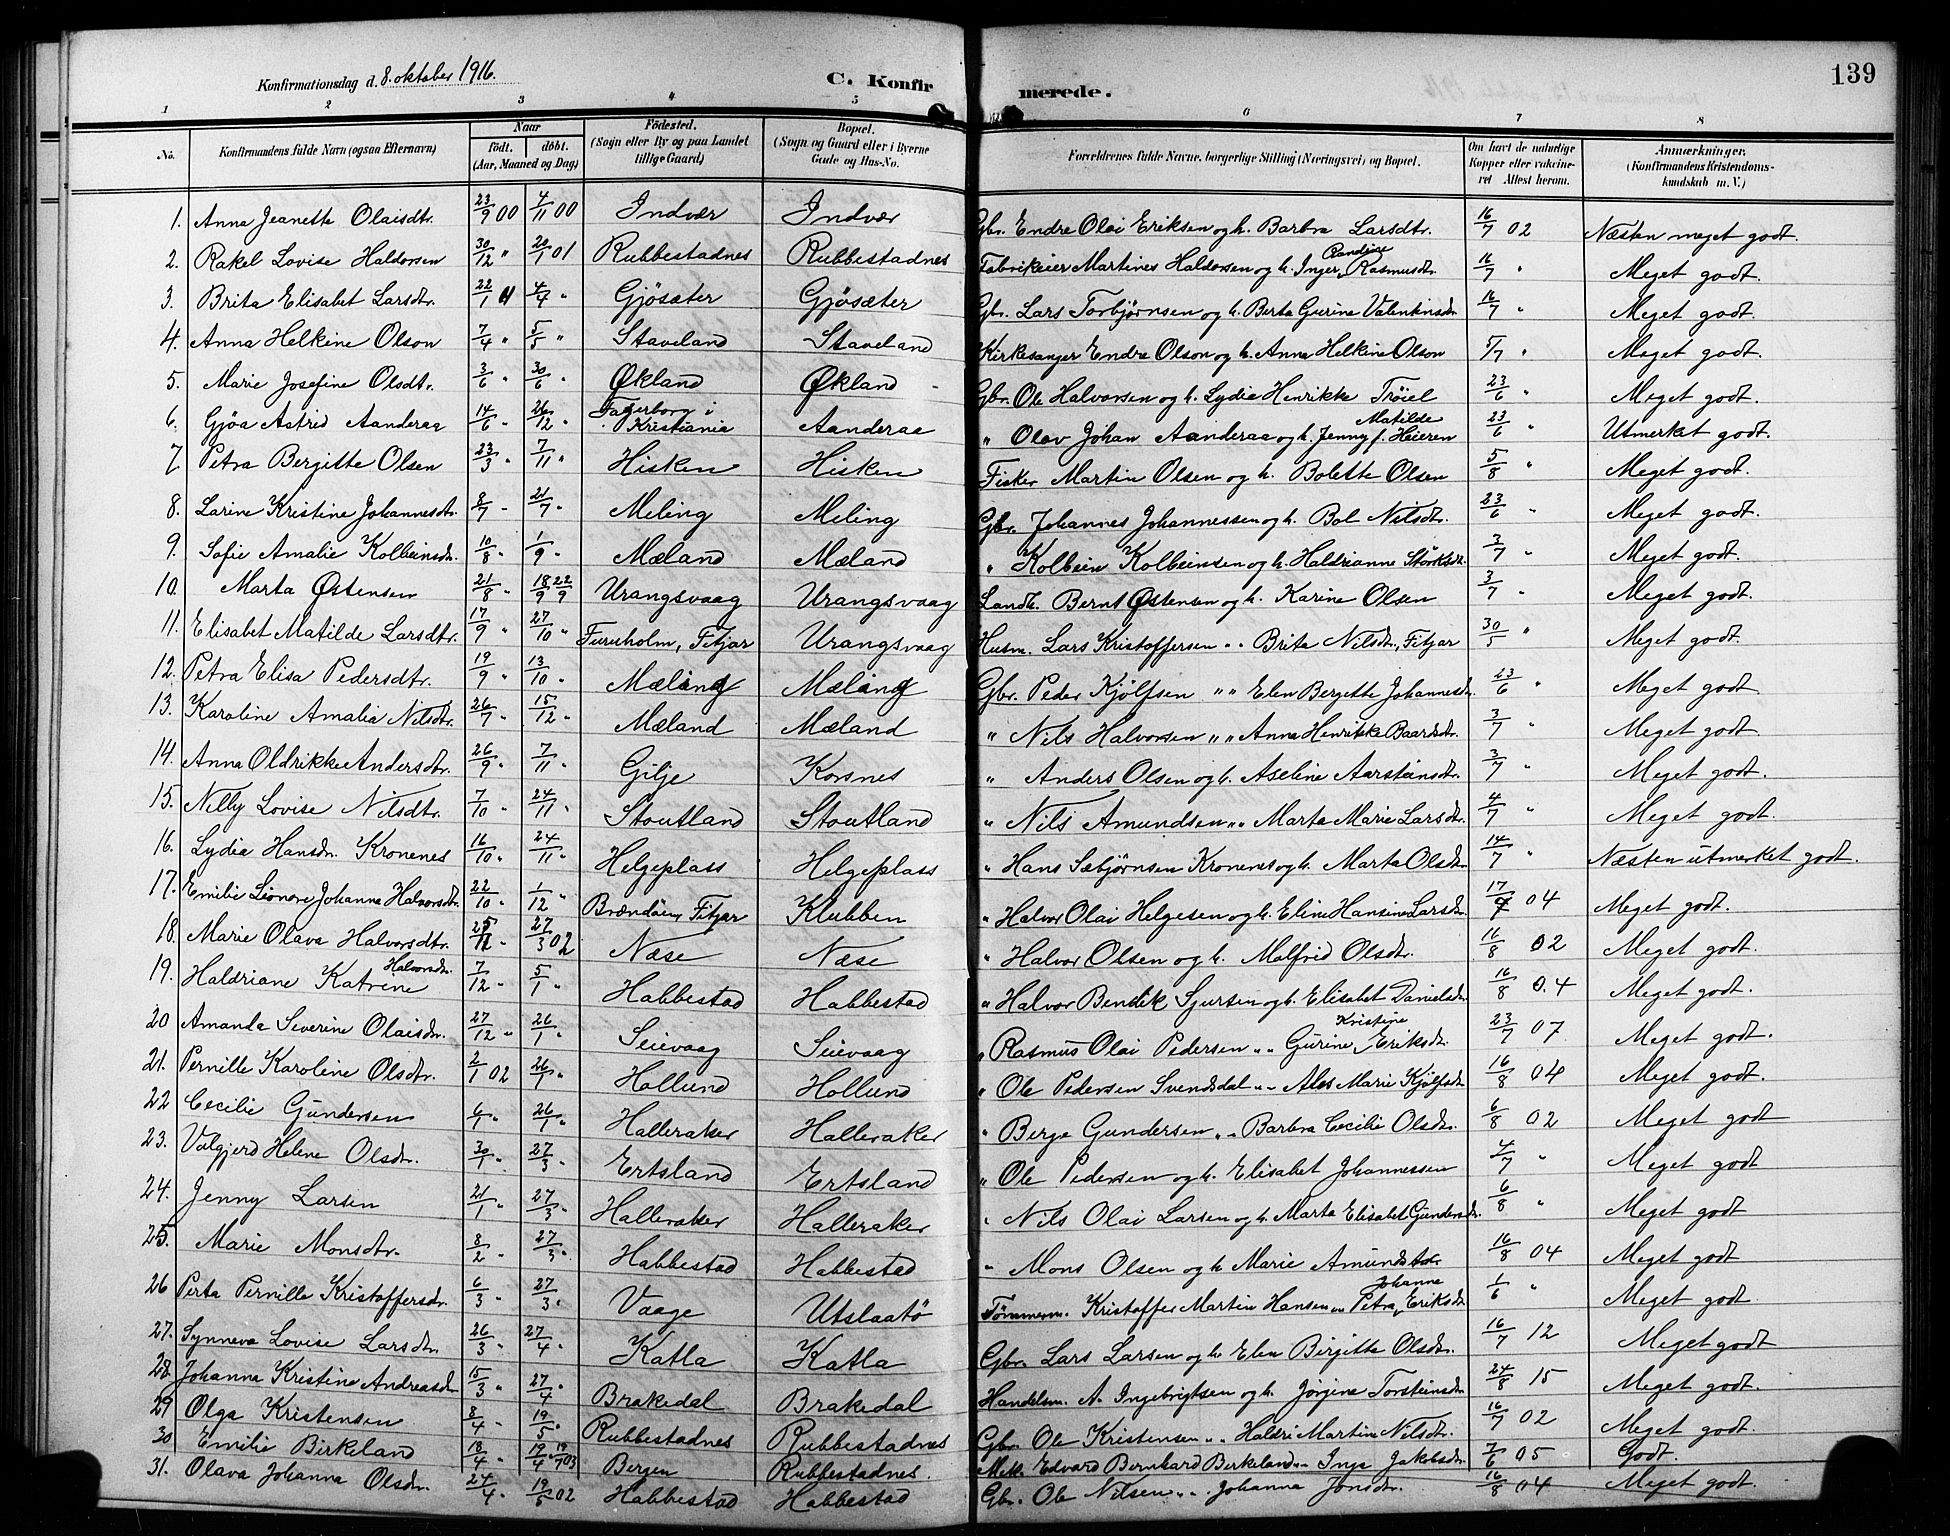 139
Konfirmationsdag d. 8. oktober 1916.
C. Konfirmerede.
1 2 3 4 5 6 7 8
No.
Konfirmandens fulde Navn (ogsaa Efternavn)
Naar
født. døbt.
(Aar, Maaned og Dag)
Fødested.
(Sogn eller By og paa Landet tillige Gaard)
Bopæl.
(Sogn og Gaard eller i Byerne Gade og Hus-No.
Forældrenes fulde Navne, borgerlige Stilling (Næringsvei) og Bopæl.
Om havt de naturlige Kopper eller vaccineret Attest herom.
Anmærkninger. (Konfirmandens Kristendomskundskab m. V.)
1. Anna Jeanette Olaisdtr. 23/9 00 4/11 00 Indvær Indvær Gbr. Endre Olai Eriksen og h. Barbra Larsdtr. 16/7 02 Næsten meget godt.
2. Rakel Lovise Haldorsen 30/12 " 20/1 01 Rubbestadnes Rubbestadnes Fabrikeier Martines Haldorsen og h. Inger Randine Rasmusdtr. 16/7 " Meget godt.
3. Brita Elisabet Larsdtr. 22/1 01 4/4 " Gjøsæter Gjøsæter Gbr. Lars Torbjørnsen og h. Berta Gurine Valentinsdtr. 16/7 " Meget godt.
4. Anna Helkine Olson 7/4 " 5/5 " Staveland Staveland Kirkesanger Endre Olson og h. Anna Helkine Olson 5/7 " Meget godt.
5. Marie Josefine Olsdtr. 3/6 " 30/6 " Økland Økland Gbr. Ole Halvorsen og h. Lydia Henrikke Trøiel 23/6 " Meget godt.
6. Gjøa Astrid Aanderaa 14/6 " 26/12 " Fagerborg i Kristiania Aanderaa " Olav Johan Aanderaa og h. Jenny Matilde f. Heieren 23/6 " Utmerket godt.
7. Petra Bergitte Olsen 23/3 " 7/11 " Hisken Hisken Fisker Martin Olsen og h. Bolette Olsen 5/8 " Meget godt.
8. Larine Kristine Johannesdtr. 8/7 " 21/7 " Meling Meling Gbr. Johannes Johannessen og h. Bol Nilsdtr. 23/6 " Meget godt.
9. Sofie Amalie Kolbeinsdtr. 10/8 " 1/9 " Mæland Mæland " Kolbein Kolbeinsen og h. Haldrianne Størksdtr. 3/7 " Meget godt.
10. Marta Østensen 21/8 " 18/9 22/9 Urangsvaag Urangsvaag Landh. Bernt Østensen og h. Karine Olsen 3/7 " Meget godt.
11. Elisabet Matilde Larsdtr. 17/9 " 27/10 " Furuholm, Fitjar Urangsvaag Husm. Lars Kristoffersen " " Brita Nilsdtr, Fitjar 30/5 " Meget godt.
12. Petra Elisa Pedersdtr. 19/9 " 13/10 " Mæling Mæling Gbr. Peder Kjølfsen " " Elen Bergette Johannesdtr. 23/6 " Meget godt
13. Karoline Amalia Nilsdtr. 26/7 " 15/12 " Mæland Mæland " Nils Halvorsen " " Anna Henrikke Baardsdtr. 3/7 " Meget godt.
14. Anna Oldrikke Andersdtr. 26/9 " 7/11 " Gilje Korsnes " Anders Olsen og h. Aseline Aarsteinsdtr. 3/7 " Meget godt.
15. Nilly Lovise Nilsdtr. 7/10 " 24/11 " Stoutland Stoutland " Nils Amundsen " " Marta Marie Larsdtr. 4/7 " Meget godt.
16. Lydia Hansdr. Kronenes 16/10 " 24/11 " Helgeplass Helgeplass " Hans Sæbjørnsen Kronenes og h. Marta Olsdtr 14/7 " Næsten utmerket godt.
17. Emilie Leonore Johanna Halvorsdtr. 22/10 " 1/12 " Brændøen, Fitjar Klubben " Halvor Olai Helgesen og h. Eline Hansine Larsdtr 17/9 04 Meget godt.
18. Marie Olava Halvorsdtr. 25/12 " 27/3 02 Næse Næse " Halvor Olsen og h. Malfrid Olsdtr. 11/8 02 Meget godt.
19. Haldriane Katrine Halvorsdtr. 7/12 " 5/1 " Habbestad Habbestad " Halvor Bendik Sjursen og h. Elisabet Danielsdtr. 16/8 04 Meget godt.
20 Amanda Severine Olaisdtr. 27/12 " 26/1 " Seievaag Seievaag " Rasmus Olai Pedersen " " Gurine Kristine Eriksdtr. 23/7 07 Meget godt.
21. Pernille Karoline Olsdtr. 2/1 02 26/1 " Hollund Hollund " Ole Pedersen Svendsdal " " Ales Marie Kjølfsdtr 16/8 04 Meget godt.
22 Cecilie Gundersen 6/1 " 26/1 " Halleraker Halleraker " Berge Gundersen " " Barbra Cecilie Olsdtr. 6/8 02 Meget godt
23. Valgjerd Helene Olsdtr. 30/1 " 27/3 " Ertsland Ertsland " Ole Pedersen og h. Elisabet Johannessen 4/7 " Meget godt
24. Jenny Larsen 21/1 " 27/3 " Halleraker Halleraker " Nils Olai Larsen og h. Marta Elisabet Gundersdtr. 6/8 " Meget godt
25. Marie Monsdtr. 8/2 " 27/3 " Habbestad Habbestad " Mons Olsen og h. Marie Amundsdtr 16/8 04 Meget godt
26 Perta Pernille Kristoffersdtr. 6/3 " 27/3 " Vaage Utslaatø Tømmerm. Kristoffer Martin Hansen " Petra Johanna Eriksdtr 1/6 " Meget godt
27. Synneva Lovise Larsdtr. 26/3 " 27/4 " Katla Katla Gbr. Lars Larsen og h. Elen Birgitte Olsdtr. 16/7 12 Meget godt
28. Johanna Kristine Andreasdtr 15/3 " 27/4 " Brakedal Brakedal Handelsm. A. Ingebrigtsen og h. Jørgine Torsteinsdtr. 24/8 15 Meget godt.
29 Olga Kristensen 8/4 " 19/5 " Rubbestadnes Rubbestadnes Gbr. Ole Kristensen " " Haldri Martine Nilsdtr. 16/7 02 Meget godt.
30 Emilie Birkeland 18/4 " 19/4 19/7 03 Bergen Rubbestadnes. Mek. Edvard Bernhard Birkeland " Inga Jakobsdtr. 7/6 05 Godt.
31. Olava Johanna Olsdtr. 24/4 " 19/5 02 Habbestad Habbestad Gbr. Ole Nilsen " " Johanna Jonsdtr. 16/8 04 Meget godt.